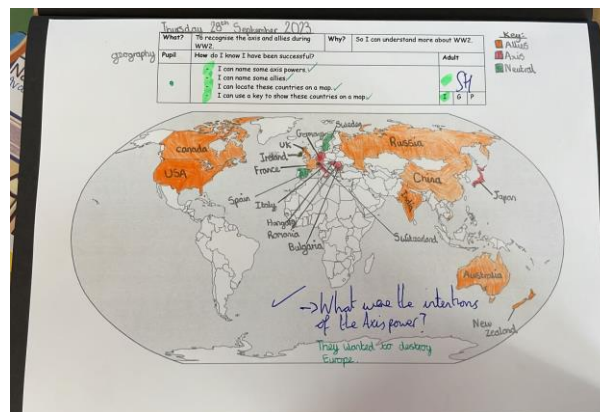 Thursday 28th September 2023
What? To recognise the axis and allies during WW2. Why? So I can understand more about WW2.
geography
Pupil How do I know I have been successful? Adult
I can name some axis powers.
I can name some allies.
I can locate these countries on a map.
I can use a key to show these countries on a map.
SH
I G P
Key:
Allies
Axis
Neutral
Canada
USA
UK
Ireland
France
Spain
Germany
Sweden
Italy
Hungary
Romania
Bulgaria
Switzerland
Russia
China
India
Japan
Australia
New
Zealand
→ What were the intentions
of the Axis power?
They wanted to destroy
Europe.